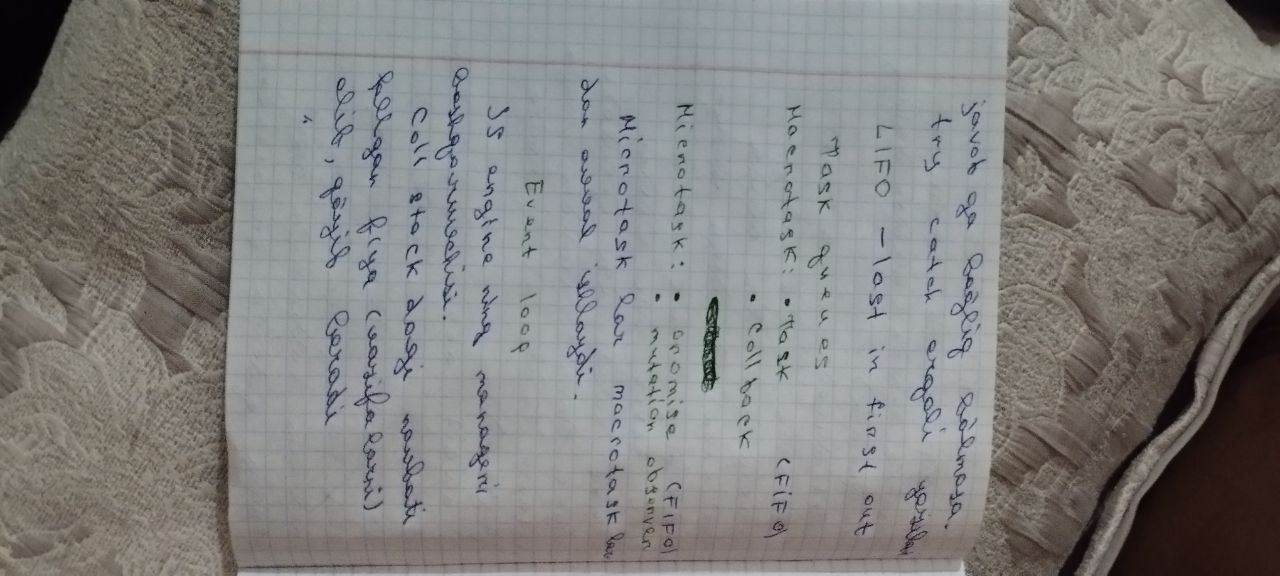 javob ga bog'liq bo'lmasa.
try catch orqali yoziladi
LIFO – last in first out
Task queues
Macrotask: • Task (FIFO)
• Callback
Microtask: • promise (FIFO)
• mutation observer
Microtask lar macrotask lar
dan avval ishlaydi.
Event loop
JS engine ning manageri
boshqaruvchisi.
Call stack dagi navbati
kelgan f-iya (vazifalarni)
olib, qo'yib boradi